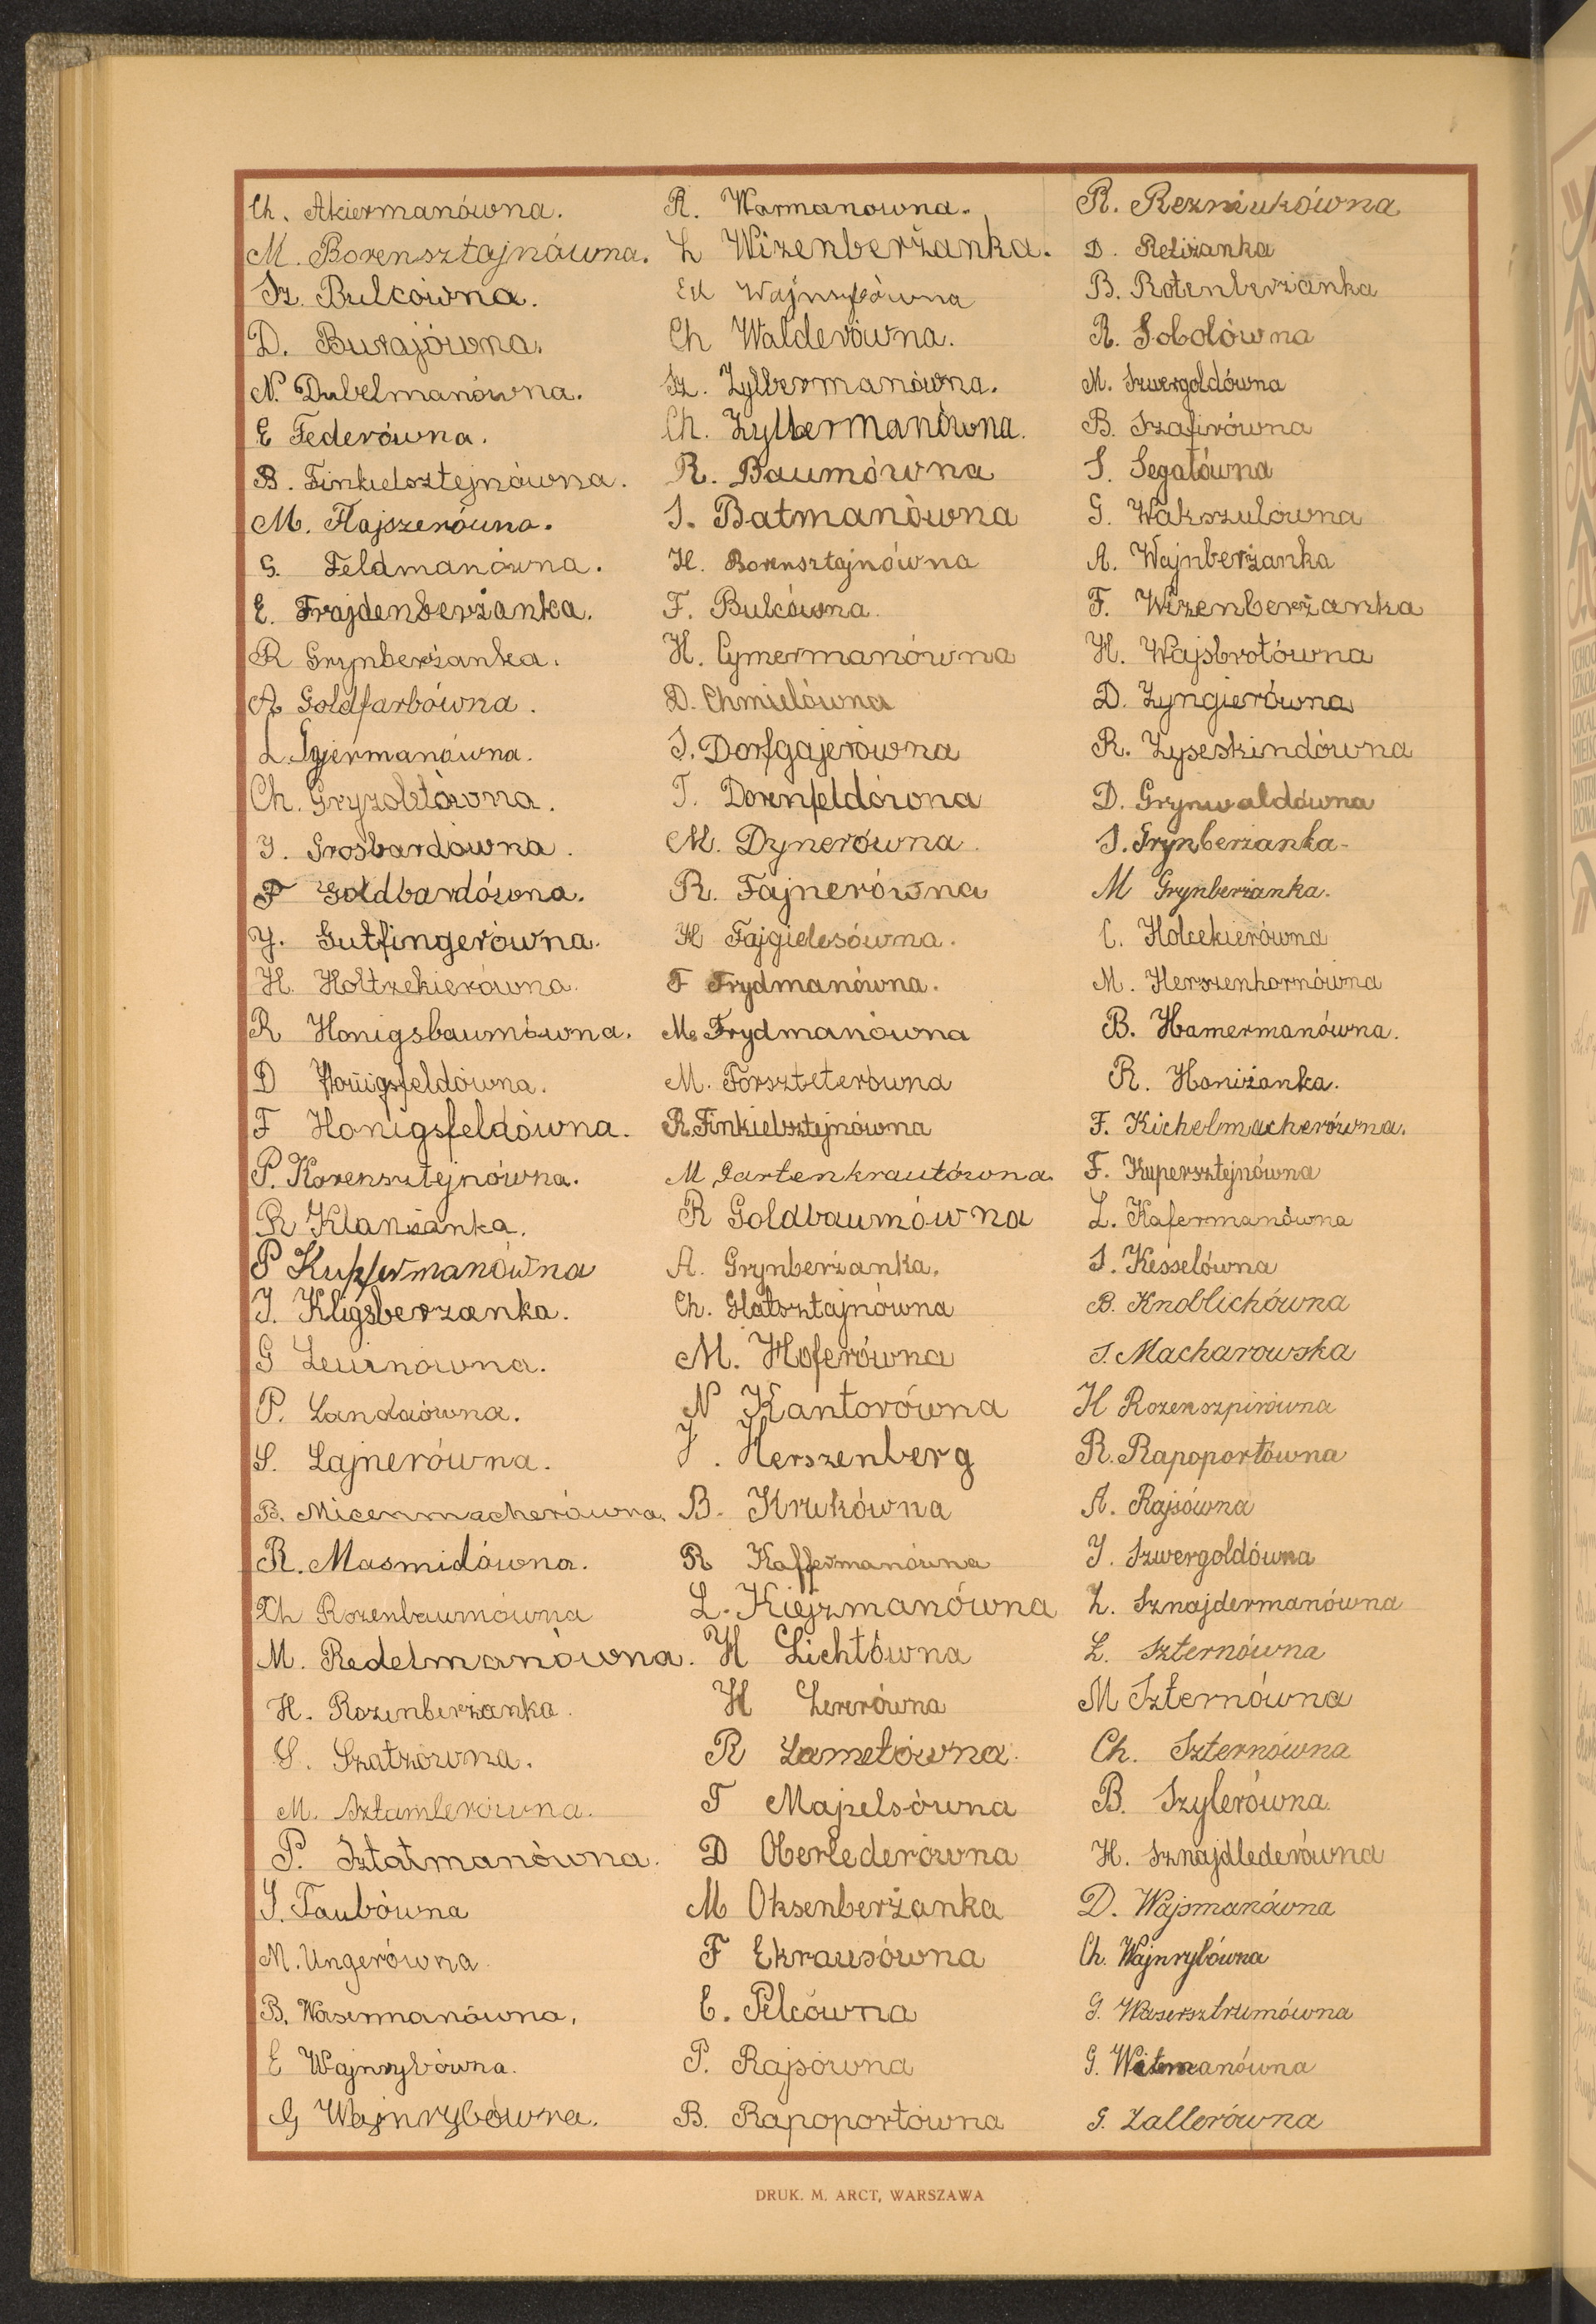 Ch. Akiermanówna.
M. Borensztajnówna.
Sz. Bulcówna.
D. Burajówna.
N. Dubelmanówna.
E Federówna.
B. Finkielsztejnówna.
M. Flajszerówna.
G. Feldmanówna.
E. Frajdenberżanka.
R Grynberżanka.
A Goldfarbówna.
L.
Ch. Gryzoletówna.
I. Grosbardówna.
F Goldbardówna.
Y. Gutfingerówna.
H. Holtzekierówna.
R Honigsbaumówna.
D Honigsfeldówna.
F Honigsfeldówna.
P. Korensztejnówna.
R Klanżanka.
P Kupfermanówna
I. Kligsberżanka.
G
P. Landaówna.
S. Lajnerówna.
B. Micenmacherówna.
R. Masmidówna.
Ch Rozenbaumówna
M. Redelmanówna.
H. Rozenberżanka.
S. Szatzówna.
M. Sztamlerówna.
P. Sztatmanówna.
S. Taubówna
M. Ungerówna
B. Wasermanówna.
E Wajnrybówna.
G Wajnrybówna.
R. Warmanówna.
L Wizenberżanka.
Ed
Ch Walderówna.
Sz. Zylbermanówna.
Ch. Zylbermanówna.
R. Baumówna
S. Batmanówna
H. Borensztajnówna
F. Bulcówna.
H. Cymermanówna
D. Chmielówna
S. Dorfgajerówna
T. Dorenfeldówna
M. Dynerówna.
R. Fajnerówna
H Fajgielesówna.
F Frydmanówna.
M. Frydmanówna
M. Forszteterówna
R. Finkielsztejnówna
M Gartenkrautówna
R Goldbaumówna
A. Grynberżanka.
Ch. Glatsztajnówna
M. Hoferówna
N Kantorówna
J. Herszenberg
B. Krukówna
R Kaffermanówna
L. Kiejzmanówna
H Lichtówna
H Lererówna
R Lametówna.
T Majzelsówna
D Oberlederówna
M Oksenberżanka
F Ekrausówna
C. Pelcówna
P. Rajsówna
B. Rapoportówna
R. Rezniukówna
D. Reliżanka
B. Rotenberżanka
R. Sobolówna
M. Szwergoldówna
B. Szafirówna
S. Segałówna
G. Wakszulówna
A. Wajnberżanka
F. Wizenberżanka
H. Wajsbrotówna
D. Zyngierówna
R. Zyseskindówna
D. Grynwaldówna
S. Grynberżanka
M Grynberżanka.
C. Holcekierówna
M. Herszenhornówna
B. Hamermanówna.
R. Honiżanka.
F. Kichelmacherówna.
F. Kupersztejnówna
L. Kafermanówna
S. Kesselówna
B. Knoblichówna
S. Macharowska
H Rozenszpirówna
R. Rapoportówna
A. Rajsówna
I. Szwergoldówna
Z. Sznajdermanówna
L. Szternówna
M Szternówna
Ch. Szternówna
B. Szylerówna.
H. Sznajdlederówna
D. Wajsmanówna
Ch. Wajnrybówna
G. Wasersztrumówna
G. Witmanówna
G. Zallerówna
DRUK. M. ARCT, WARSZAWA